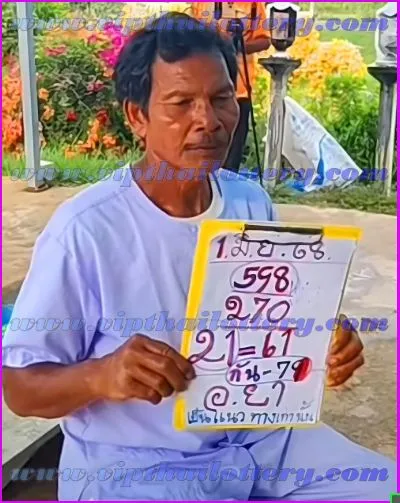 www.vipthailottery.com
www.vipthailottery.com
๑.มิ.ย.68.
598
270
21=61
กัน-79
อ.ยา
เป็นแนวทางเท่านั้น
www.vipthailottery.com
www.vipthailottery.com